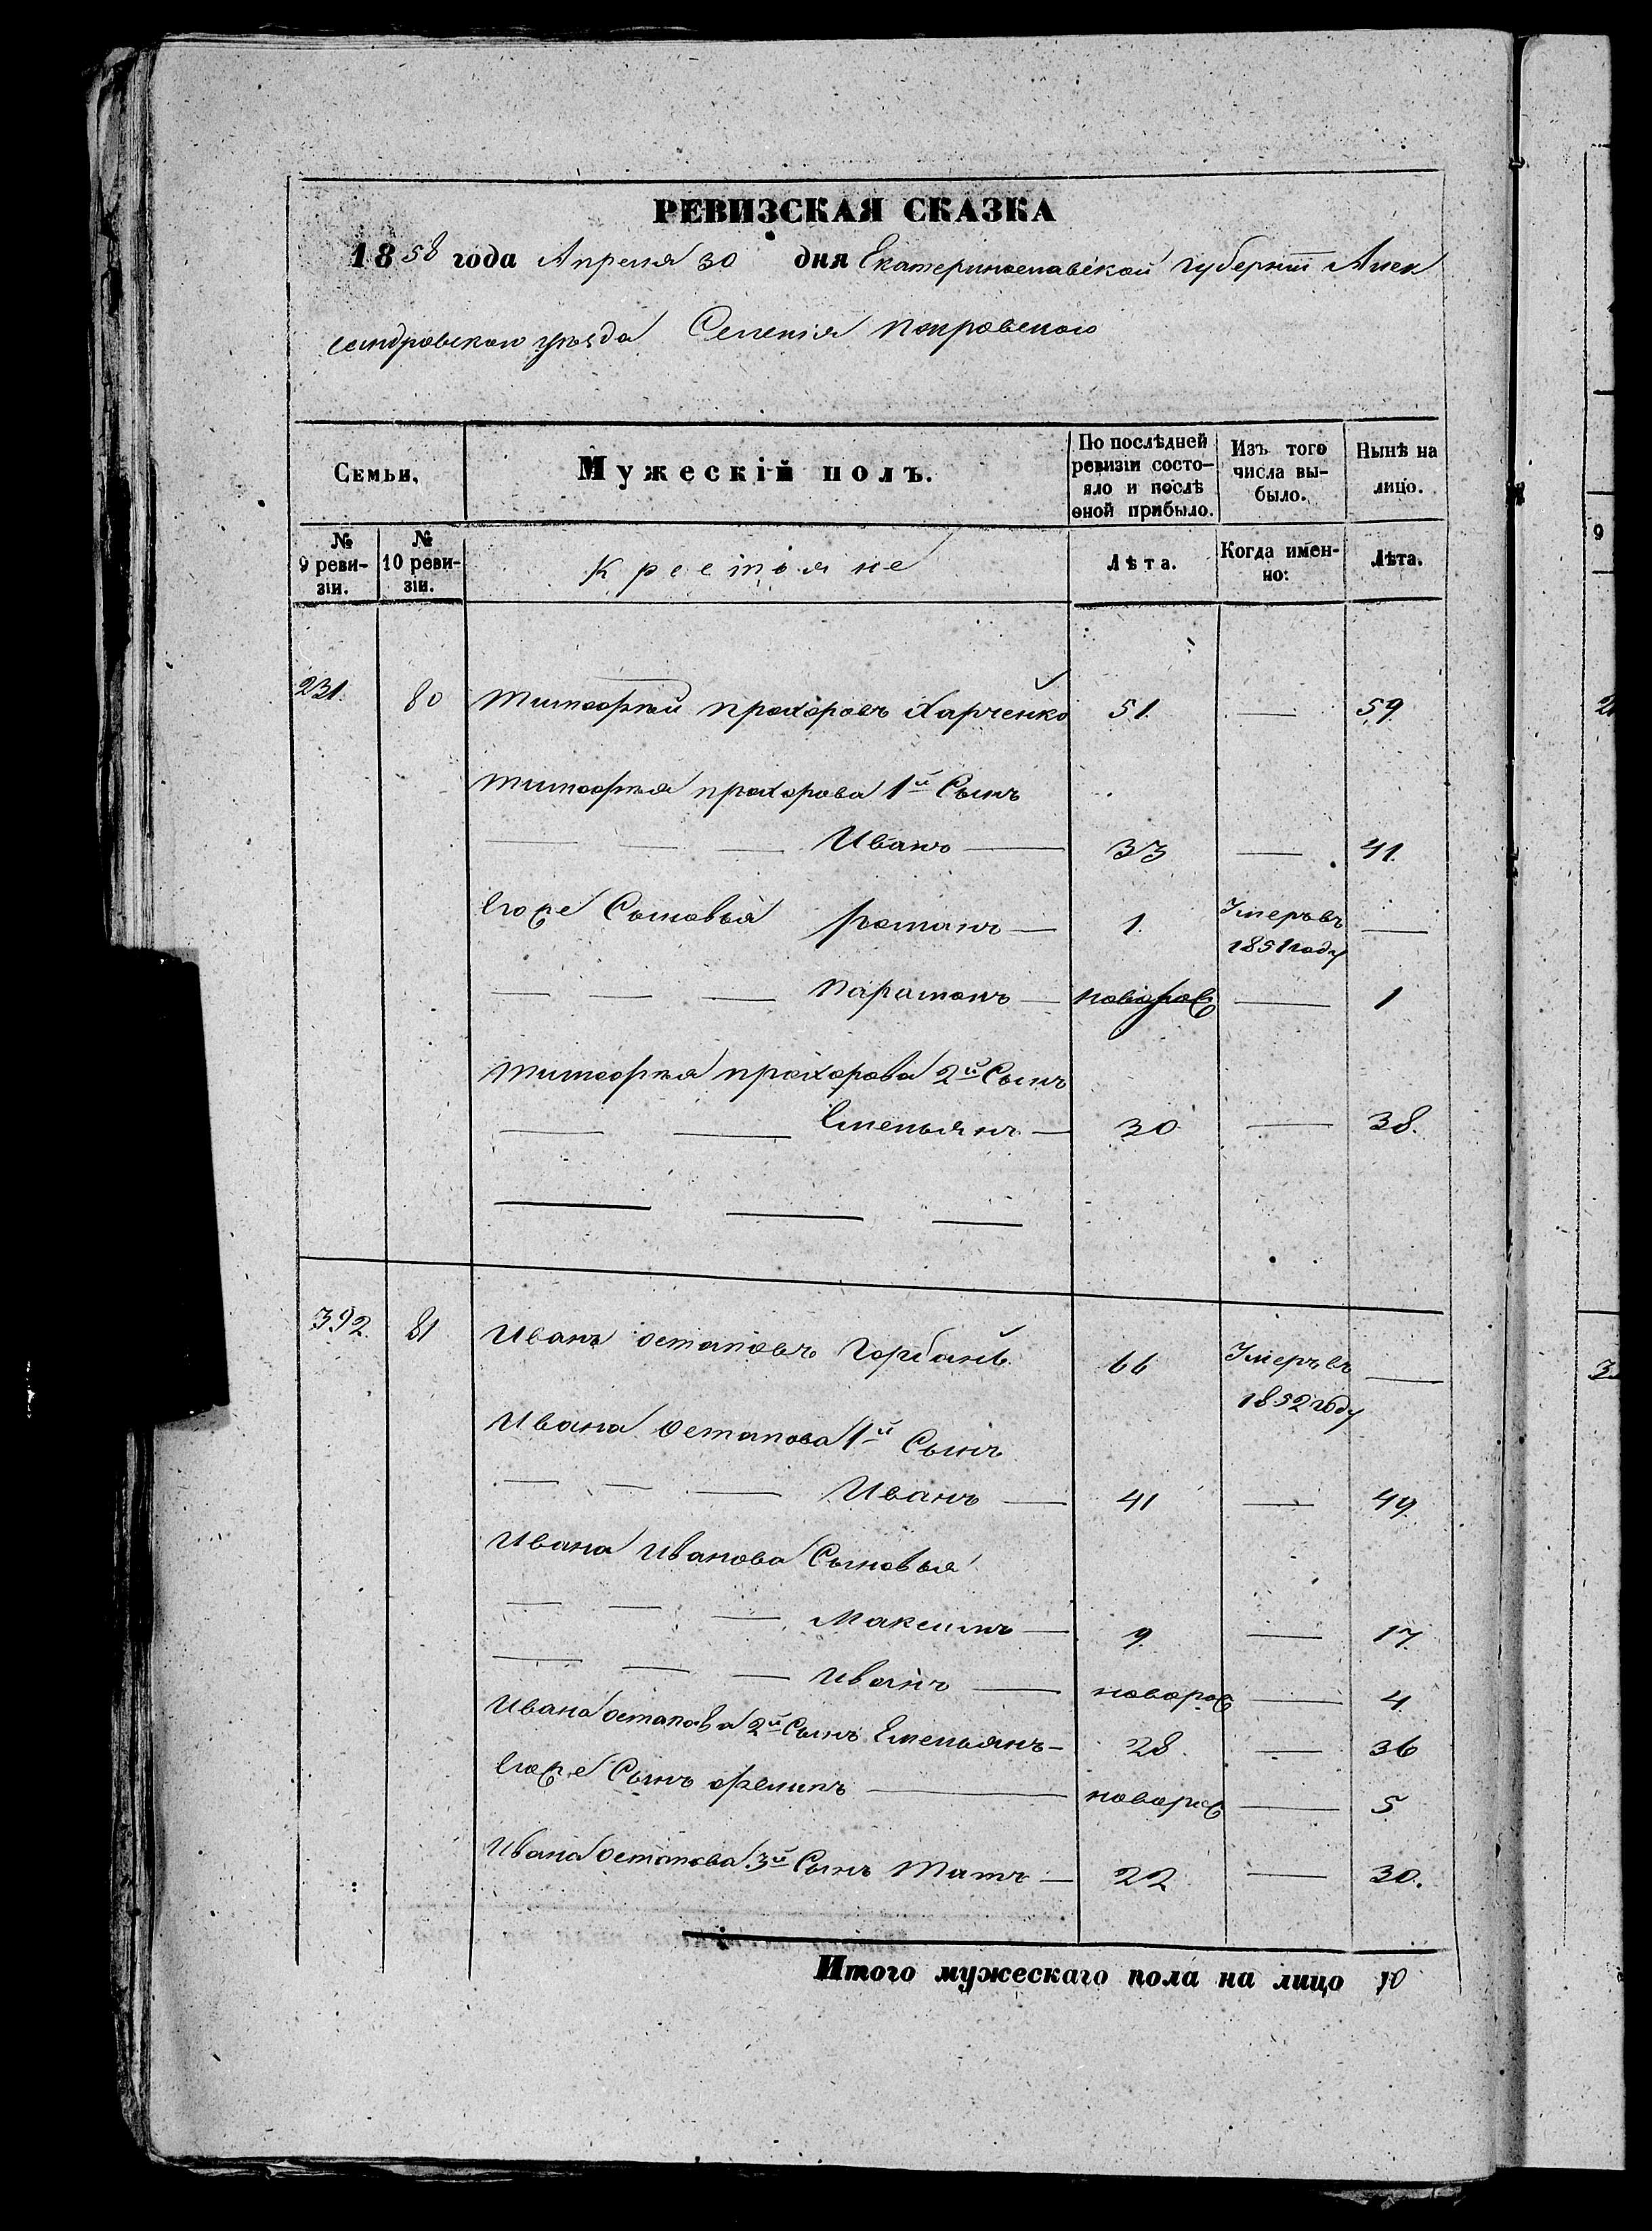 РЕВИЗСКАЯ СКАЗКА
1858 года Апреля 30 дня Екатеринославской губернии Алек
сандровскаго уѣзда Селенія Покровскаго
Семьи. Мужескій полъ. По послѣдней ревизіи состо- яло и послѣ оной прибыло. Изъ того числа вы- было. Нынѣ на лицо.
№ 9 реви- зіи. № 10 реви- зіи. Крестьяне Лѣта. Когда имен- но: Лѣта.
231. 80 Тимофѣй Прохоровъ Харченко 51. — 59.
Тимофѣя Прохорова 1й Сынъ
Иванъ — 33 — 41.
Его же Сыновья Романъ — 1. Умеръ въ 1851 году —
Парамонъ — новорож — 1
Тимофѣя Прохорова 2й Сынъ
Емельянъ — 30 — 38.
392. 81 Иванъ Остаповъ Горбань 66 Умеръ въ 1852 году —
Ивана Остапова 1й Сынъ
Иванъ — 41 — 49.
Ивана Иванова Сыновья
Максимъ — 9 — 17.
Иванъ — новорож — 4
Ивана Остапова 2й Сынъ Емельянъ — 28. — 36
Его же Сынъ Филипъ — новорож — 5
Ивана Остапова 3й Сынъ Титъ — 22 — 30.
Итого мужескаго пола на лицо 10